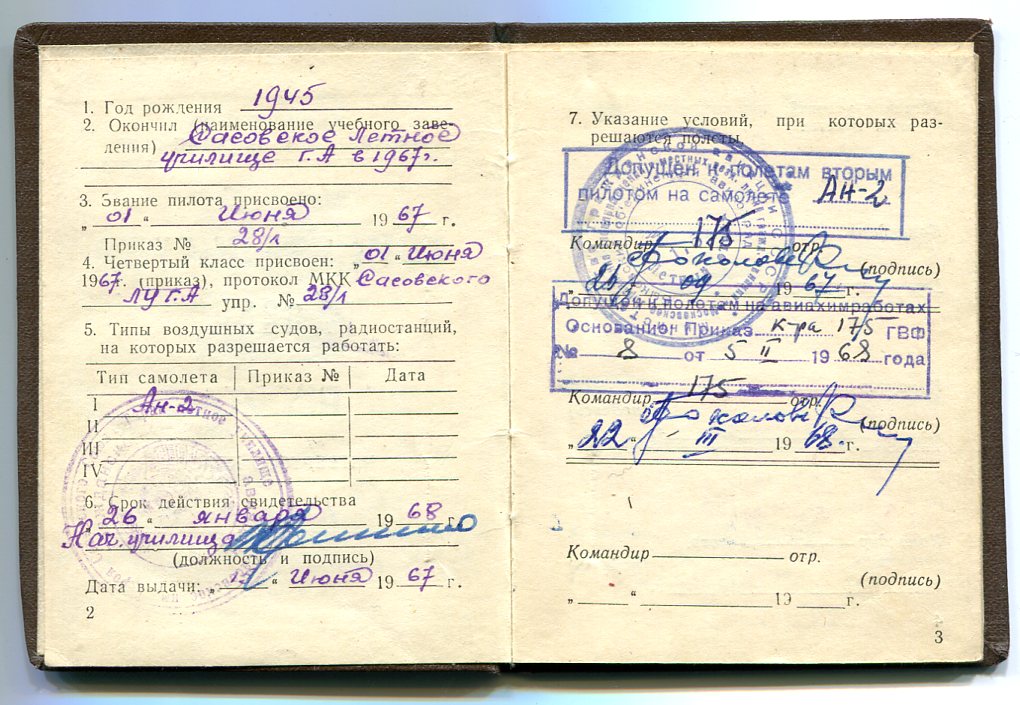 1. Год рождения 1945
2. Окончил (наименование учебного заве-
дения) Сасовское Летное
училище Г.А в 1967г.
3. Звание пилота присвоено:
„ 01 “ Июня 1967 г.
Приказ № 28/л
4. Четвертый класс присвоен: „01“ Июня
1967г. (приказ), протокол МКК Сасовского
ЛУ Г.А упр. № 28/л
5. Типы воздушных судов, радиостанций,
на которых разрешается работать:
Тип самолета Приказ № Дата
I Ан-2
II
III
IV
6. Срок действия свидетельства
„ 26 “ января 1968 г.
Нач. училища
(должность и подпись)
Дата выдачи: „ “ Июня 1967 г.
2
7. Указание условий, при которых раз-
решаются полеты
Допущен к полетам вторым
пилотом на самолете АН-2
Командир 175 отр.
(подпись)
„ “ 09 1967 г.
Допущен к полетам на авиахимработах
Основание: Приказ к-ра 175 ГВФ
№ 8 от 5 II 1968 года
Командир 175 отр.
(подпись)
„ 22 “ III 1968 г.
Командир отр.
(подпись)
„ “ 19 г.
3